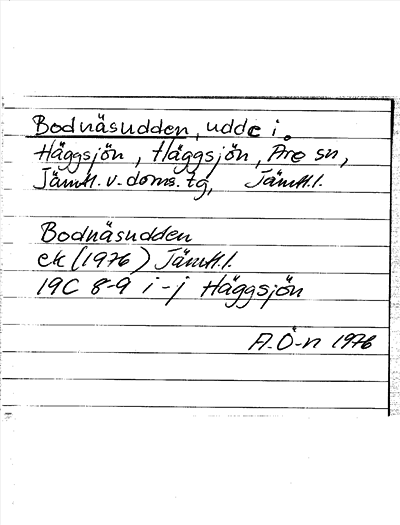 Bodnäsudden, udde i
Häggsjön, Häggsjön, Åre sn,
Jämtl. v. doms. tg, Jämtl. l.
Bodnäsudden
ek (1976) Jämtl. l.
19C 8-9 i-j Häggsjön
A. Ö-n 1976